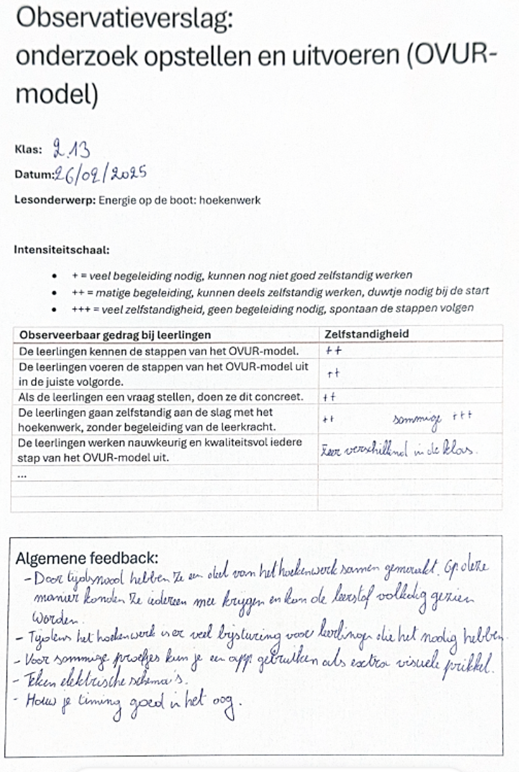 Observatieverslag:
onderzoek opstellen en uitvoeren (OVUR-
model)
Klas: 2.13
Datum: 26/02/2025
Lesonderwerp: Energie op de boot: hoekenwerk
Intensiteitschaal:
• + = veel begeleiding nodig, kunnen nog niet goed zelfstandig werken
• ++ = matige begeleiding, kunnen deels zelfstandig werken, duwtje nodig bij de start
• +++ = veel zelfstandigheid, geen begeleiding nodig, spontaan de stappen volgen
Observeerbaar gedrag bij leerlingen Zelfstandigheid
De leerlingen kennen de stappen van het OVUR-model. ++
De leerlingen voeren de stappen van het OVUR-model uit
in de juiste volgorde. ++
Als de leerlingen een vraag stellen, doen ze dit concreet. ++
De leerlingen gaan zelfstandig aan de slag met het
hoekenwerk, zonder begeleiding van de leerkracht. ++ sommige +++
De leerlingen werken nauwkeurig en kwaliteitsvol iedere
stap van het OVUR-model uit. Zeer verschillend in de klas.
...
Algemene feedback:
- Door tijdsnood hebben ze een deel van het hoekenwerk samen gemaakt. Op deze
manier konden ze iedereen mee krijgen en kon de leerstof volledig gezien
worden.
- Tijdens het hoekenwerk is er veel bijsturing voor leerlingen die het nodig hebben.
- Voor sommige proefjes kun je een app gebruiken als extra visuele prikkel.
- Teken elektrische schema's.
- Houw je timing goed in het oog.